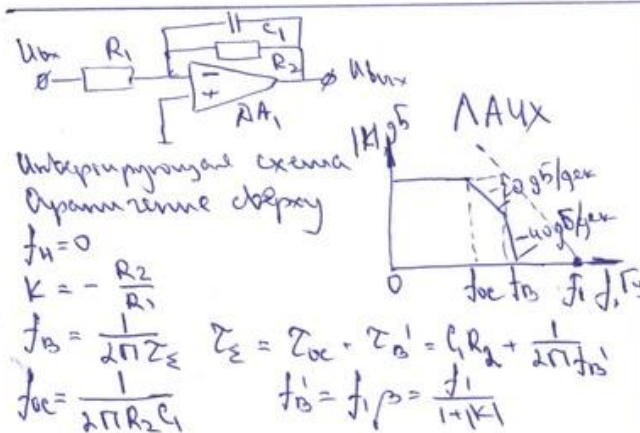 Uвх
R₁
C₁
R₂
−
+
DA₁
Uвых
Инвертирующая схема
Ограничение сверху
fн = 0
K = − R₂/R₁
fв = 1/2πτΣ τΣ = τос + τв' = C₁R₂ + 1/2πfв'
fос = 1/2πR₂C₁ fв' = f₁β = f₁/1+|K|
ЛАЧХ
|K|, дБ
-20 дБ/дек
-40 дБ/дек
0 fос fв f₁ f, Гц